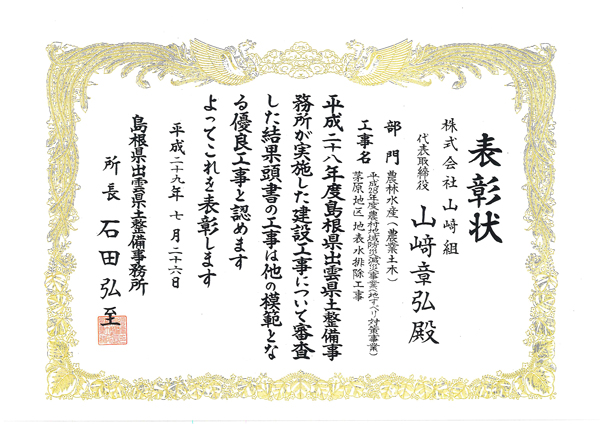 表彰状
株式会社 山﨑組
代表取締役 山﨑章弘殿
部門 農林水産(農業土木)
工事名 平成25年度農村地域防災減災事業(地すべり対策事業)
茅原地区 地表水排除工事
平成二十八年度島根県出雲県土整備事
務所が実施した建設工事について審査
した結果頭書の工事は他の模範とな
る優良工事と認めます
よってこれを表彰します
平成二十九年七月二十六日
島根県出雲県土整備事務所
所長 石田弘至